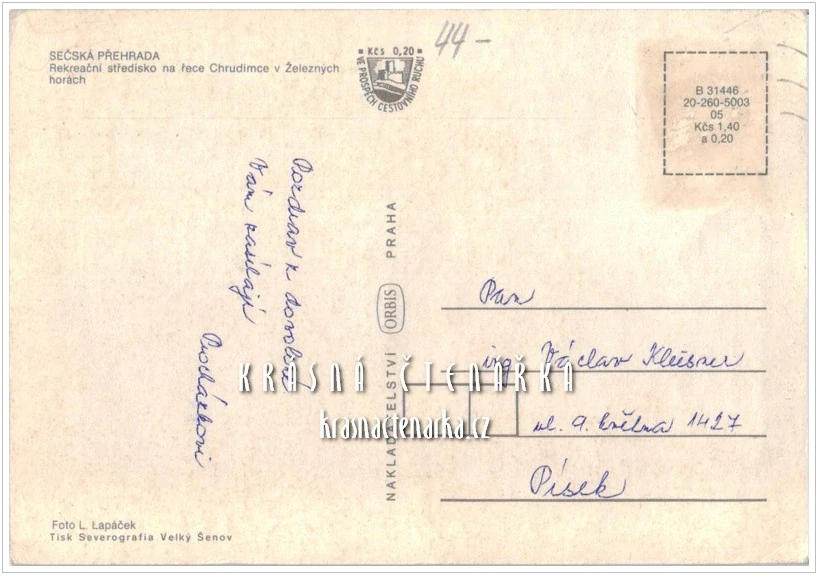 SEČSKÁ PŘEHRADA
Rekreační středisko na řece Chrudimce v Železných
horách
Kčs 0,20
VE PROSPĚCH CESTOVNÍHO RUCHU
44-
B 31446
20-260-5003
05
Kčs 1,40
a 0,20
Pozdrav z dovolené
Vám zasílají
Procházkovi
NAKLADATELSTVÍ ORBIS PRAHA
Pan
ing. Václav
ul. 9. května 1427
Písek
KRÁSNÁ ČTENÁŘKA
krasnactenarka.cz
Foto L. Łapáček
Tisk Severografia Velký Šenov